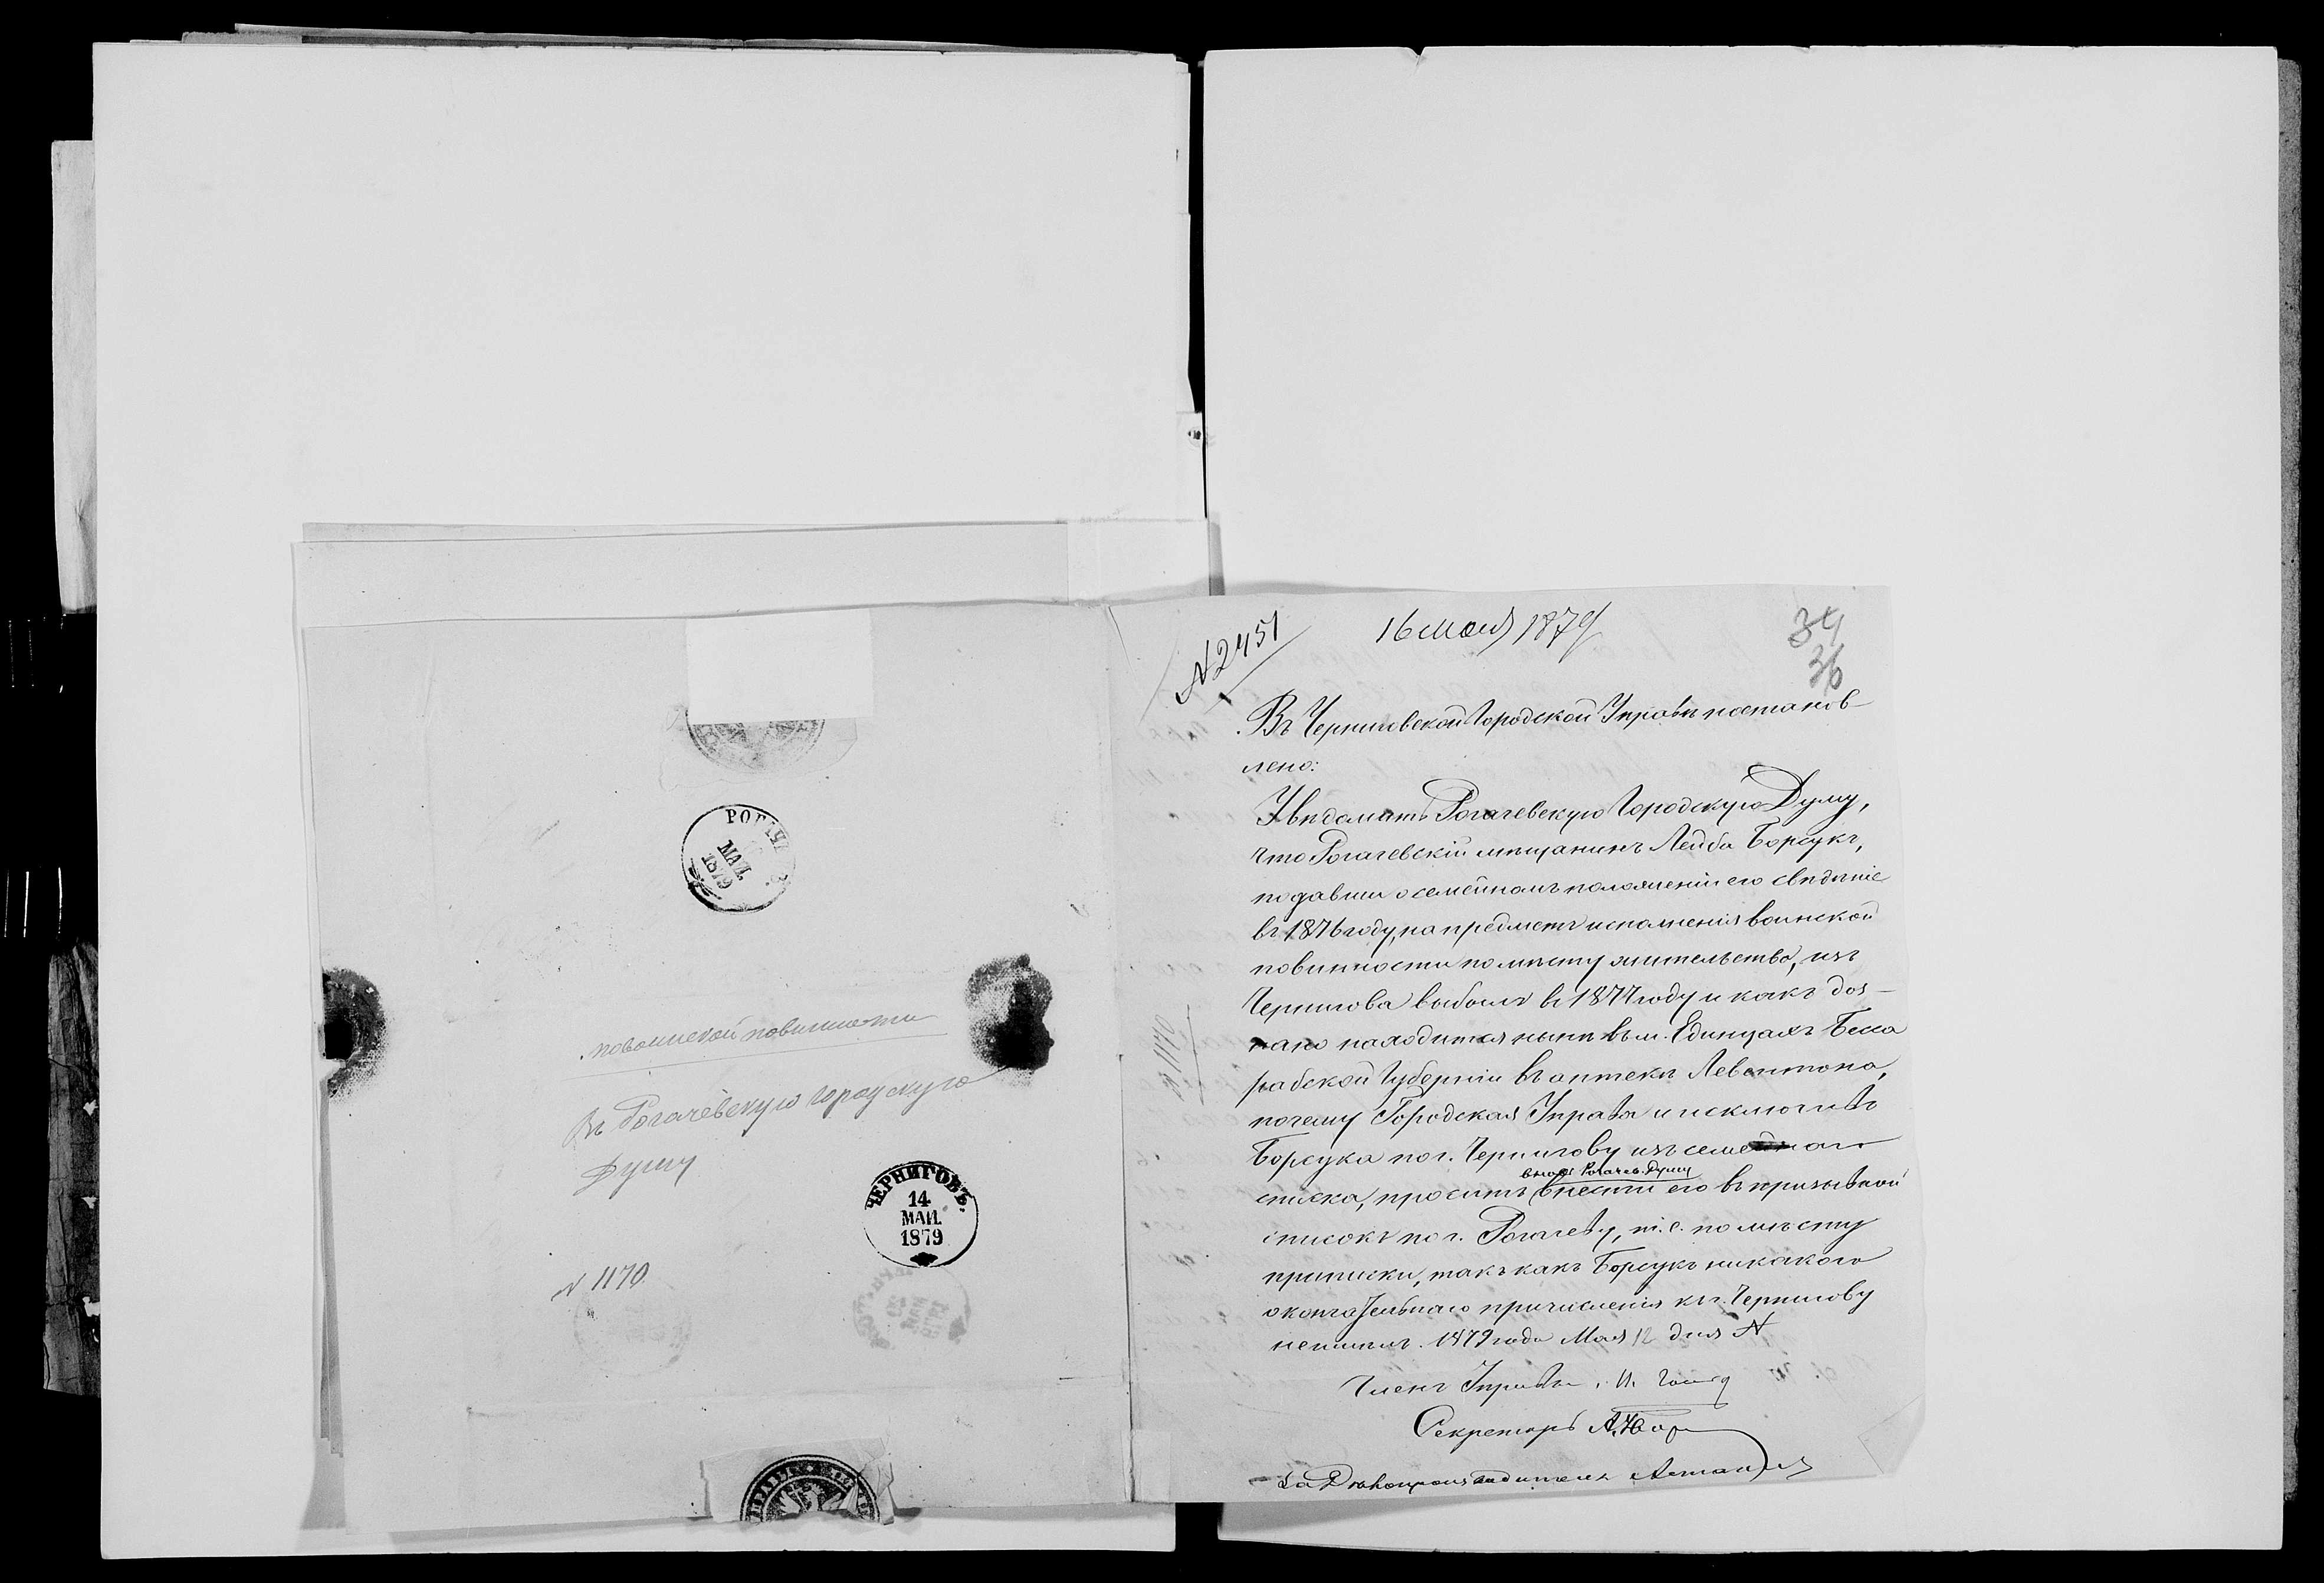 РОГАЧЕВЪ.
МАЙ.
1879
по воинской повинности
Въ Рогачевскую городскую
Думу
ЧЕРНИГОВЪ.
14
МАЙ.
1879
N 1170
N 2451
16 мая 1879
34
36
Въ Черниговской Городской Управѣ постанов-
лено:
Увѣдомить Рогачевскую Городскую Думу,
что Рогачевскій мѣщанинъ Лейба Борсукъ,
подавши о семейномъ положеніи его свѣдѣніе
въ 1876 году, на предметъ исполненія воинской
повинности по мѣсту жительства, изъ
Чернигова выбылъ въ 1877 году и какъ доз-
нано находится нынѣ въ м. Единцахъ Бесса
рабской Губерніи въ аптекѣ Левонтона,
почему Городская Управа и исключивъ
Борсука по г. Чернигову изъ семейнаго
списка, проситъ внести его въ призывной
списокъ по г. Рогачеву, т.е. по мѣсту
приписки, такъ какъ Борсукъ никакого
окончательнаго причисленія къ г. Чернигову
неимѣлъ. 1879 года Мая 12 дня N
N 1170
Членъ Управы
Секретарь А.
За Дѣлопроизводителя